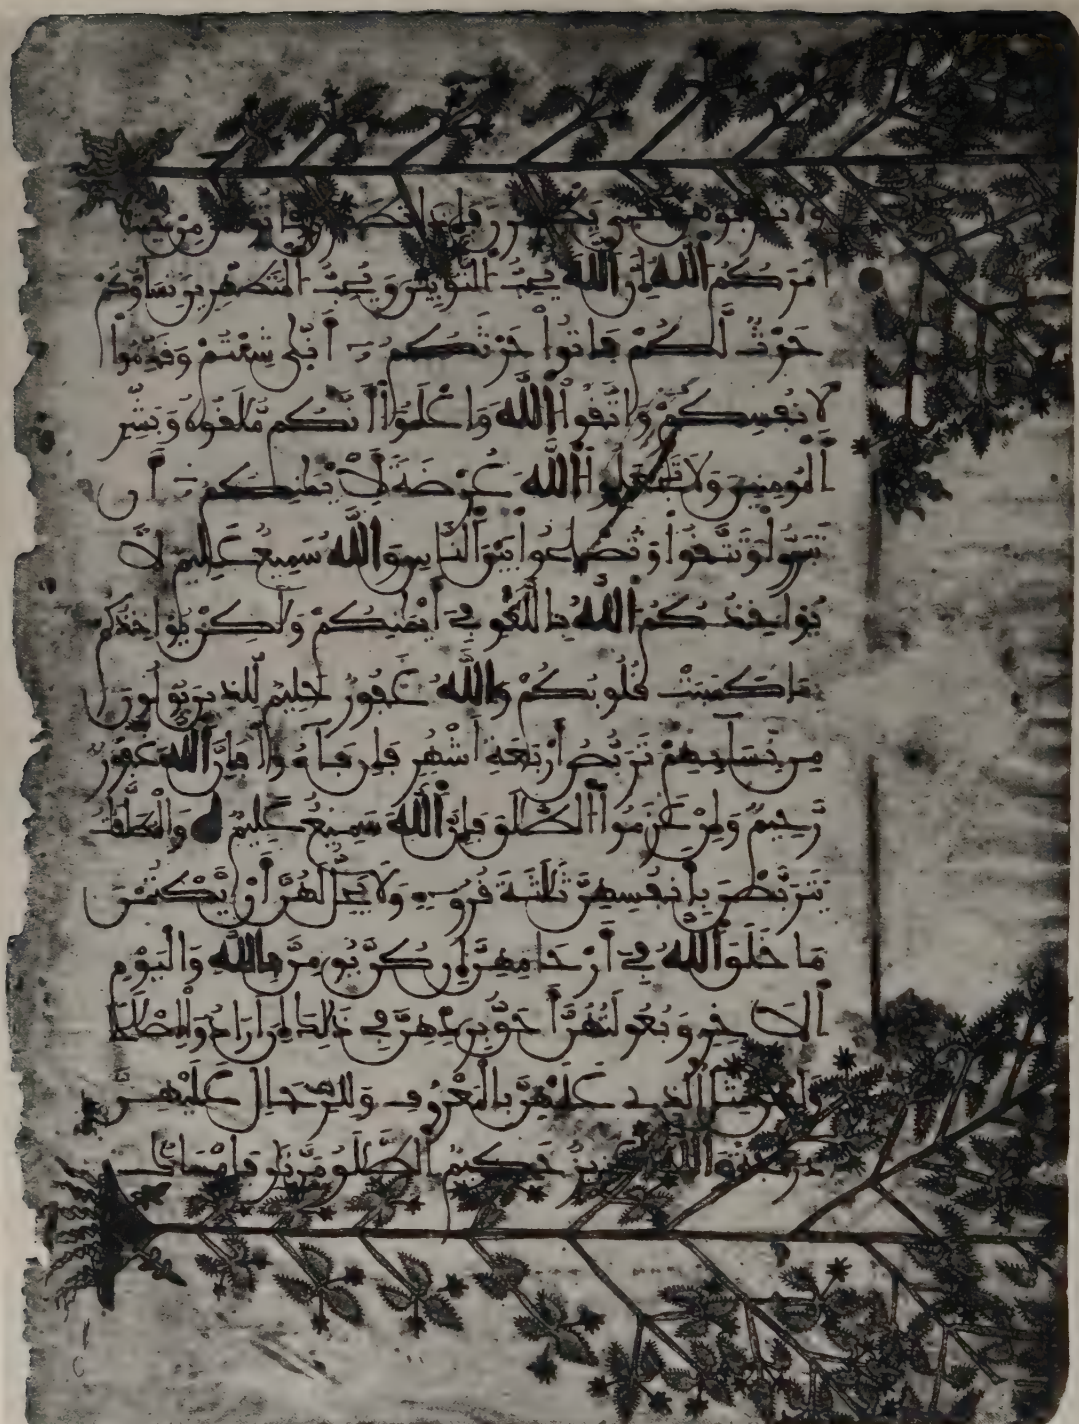 ولا تقربوهن حتى يطهرن فإذا تطهرن فاتوهن من حيث
أمركم الله إن الله يحب التوبين ويحب المتطهرين نساؤكم
حرث لكم فاتوا حرثكم أنى شئتم وقدموا
لأنفسكم واتقوا الله واعلموا أنكم ملقوه وبشر
المومنين ولا تجعلوا الله عرضة لأيمنكم أن
تبروا وتتقوا وتصلحوا بين الناس والله سميع عليم لا
يواخذكم الله باللغو في أيمنكم ولكن يواخذكم
بما كسبت قلوبكم والله غفور حليم للذين يولون
من نسايهم تربص أربعة أشهر فإن فاءو فإن الله غفور
رحيم وإن عزموا الطلق فإن الله سميع عليم والمطلقت
يتربصن بأنفسهن ثلثة قروء ولا يحل لهن أن يكتمن
ما خلق الله في أرحامهن إن كن يومن بالله واليوم
الاخر وبعولتهن أحق بردهن في ذلك إن أرادوا إصلحا
ولهن مثل الذي عليهن بالمعروف وللرجال عليهن
درجة والله عزيز حكيم الطلق مرتن فإمساك